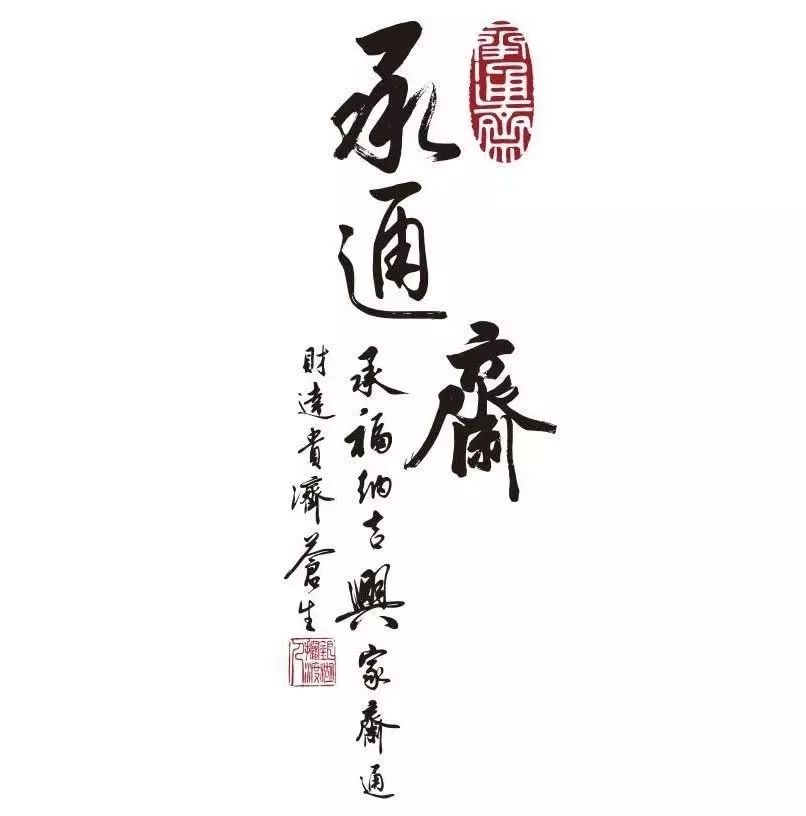 承通齋
承通齋
承福纳吉興家齋通
財達貴濟蒼生